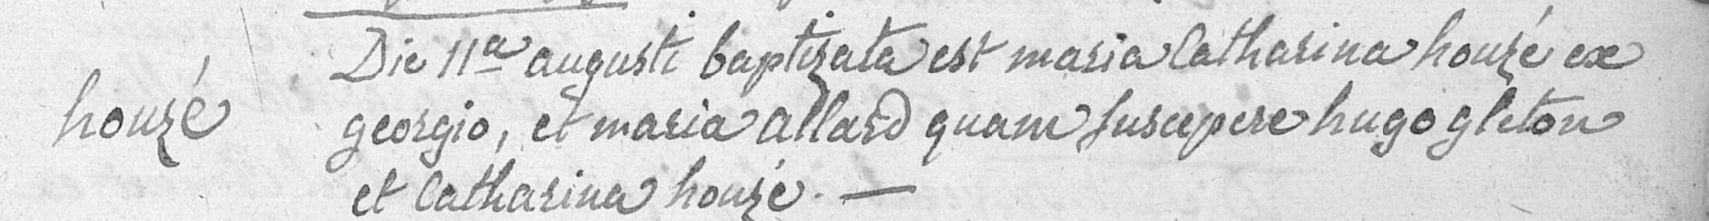 Die 11a augusti baptizata est maria Catharina houzé ex
houzé georgio, et maria allard quam suscepere hugo gleton
et Catharina houzé. —